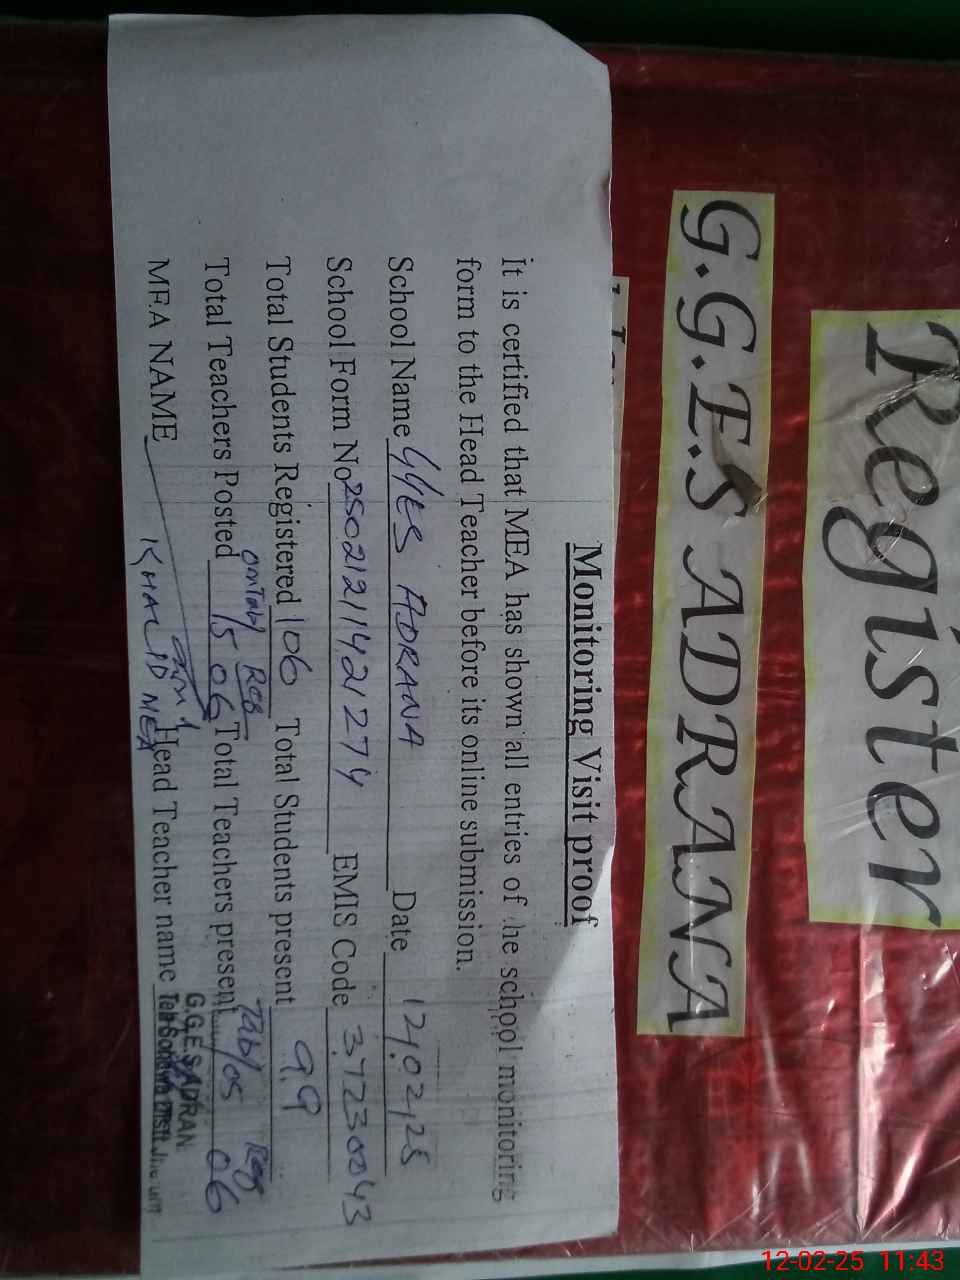 Register
G.G.E.S ADRANA
Monitoring Visit proof
it is certified that MEA has shown all entries of he school monitoring
form to the Head Teacher before its online submission.
School Name GGES ADRANA Date 12,02,25
School Form No 250212114421274 EMIS Code 37230043
Total Students Registered 106 Total Students present 99
on Tab/ Reg Tab/05 Reg
Total Teachers Posted 15 06 Total Teachers present 06
MEA NAME KHALID MEA Head Teacher name
G.G.E.S ADRAN
12-02-25 11:43